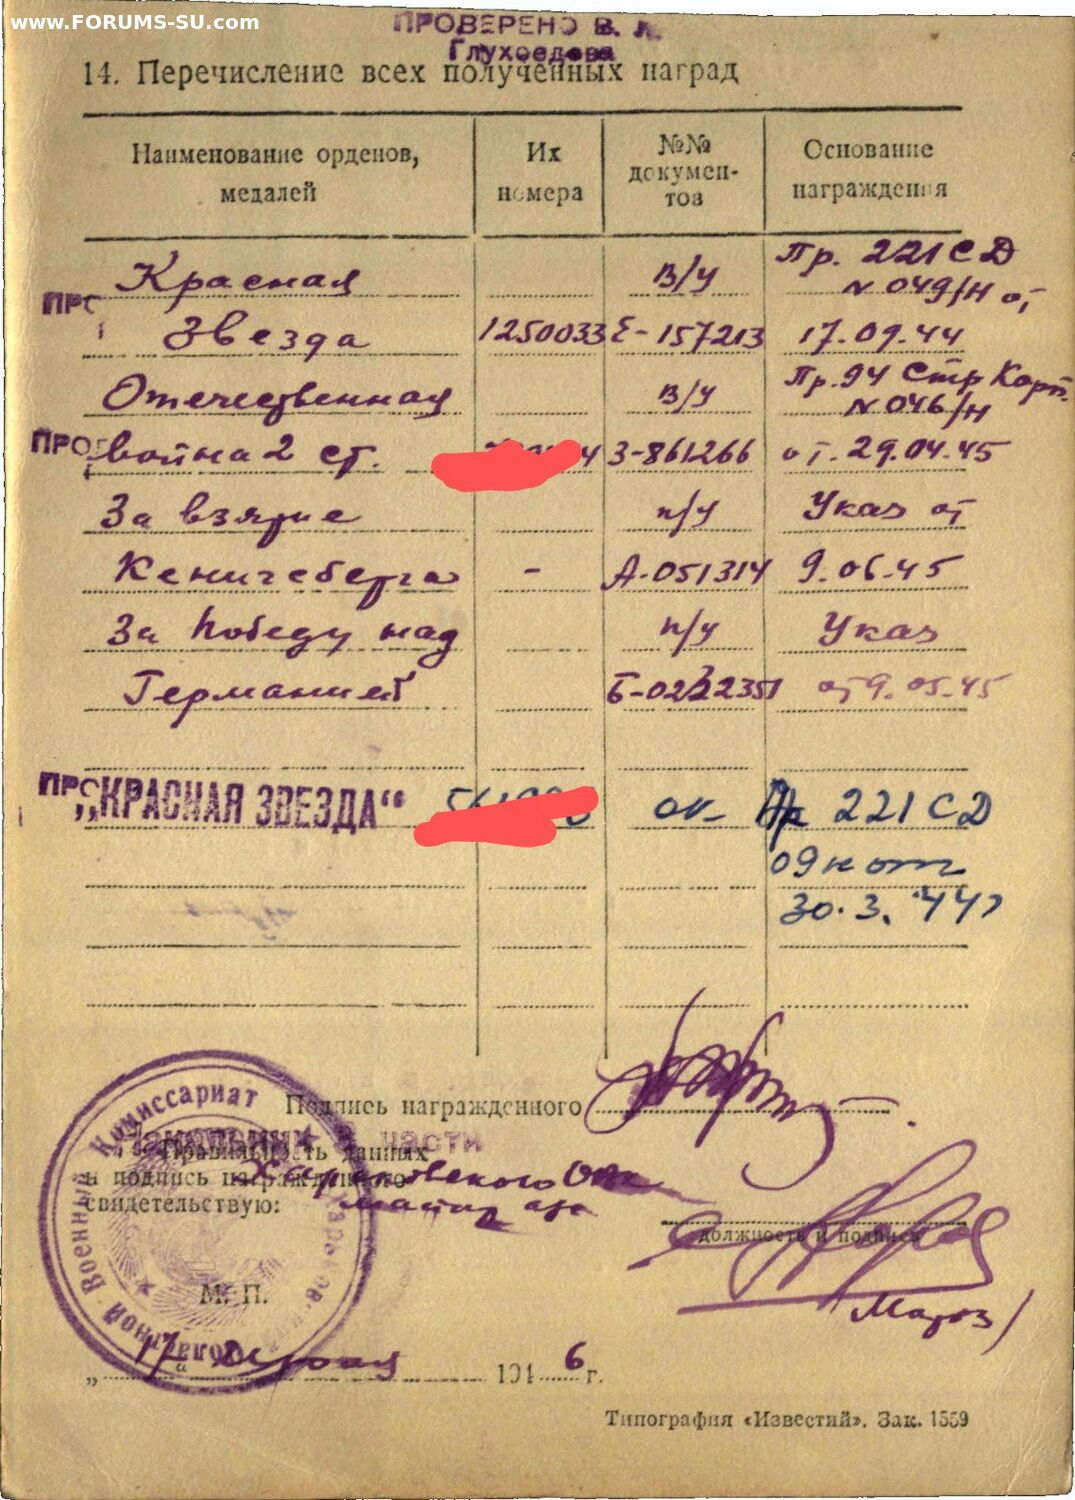 www.FORUMS-SU.com
ПРОВЕРЕНО В. А.
Глухоедова
14. Перечисление всех полученных наград
Наименование орденов, медалей
Их номера
№№ докумен-тов
Основание награждения
Красная в/у Пр. 221 СД
N 049/н от
ПРО
Звезда 1250033 Е-157213 17.09.44
Отечественная в/у Пр. 94 Стр Корп.
N 046/н
ПРО война 2 ст. 4 З-861266 от. 29.04.45
За взятие п/у Указ от
Кенигсберга - А-051314 9.06.45
За победу над п/у Указ
Германией Б-0222351 от 9.05.45
ПРО „КРАСНАЯ ЗВЕЗДА“ ок- Пр 221 СД
09н от
30.3.44г
Подпись награжденного
Правильность данных
и подпись награжденного
свидетельствую:
части
Харьковского
майор
должность и подпись
Мороз/
Военный Комиссариат
М. П.
„17“ 194 6 г.
Типография «Известий». Зак. 1559